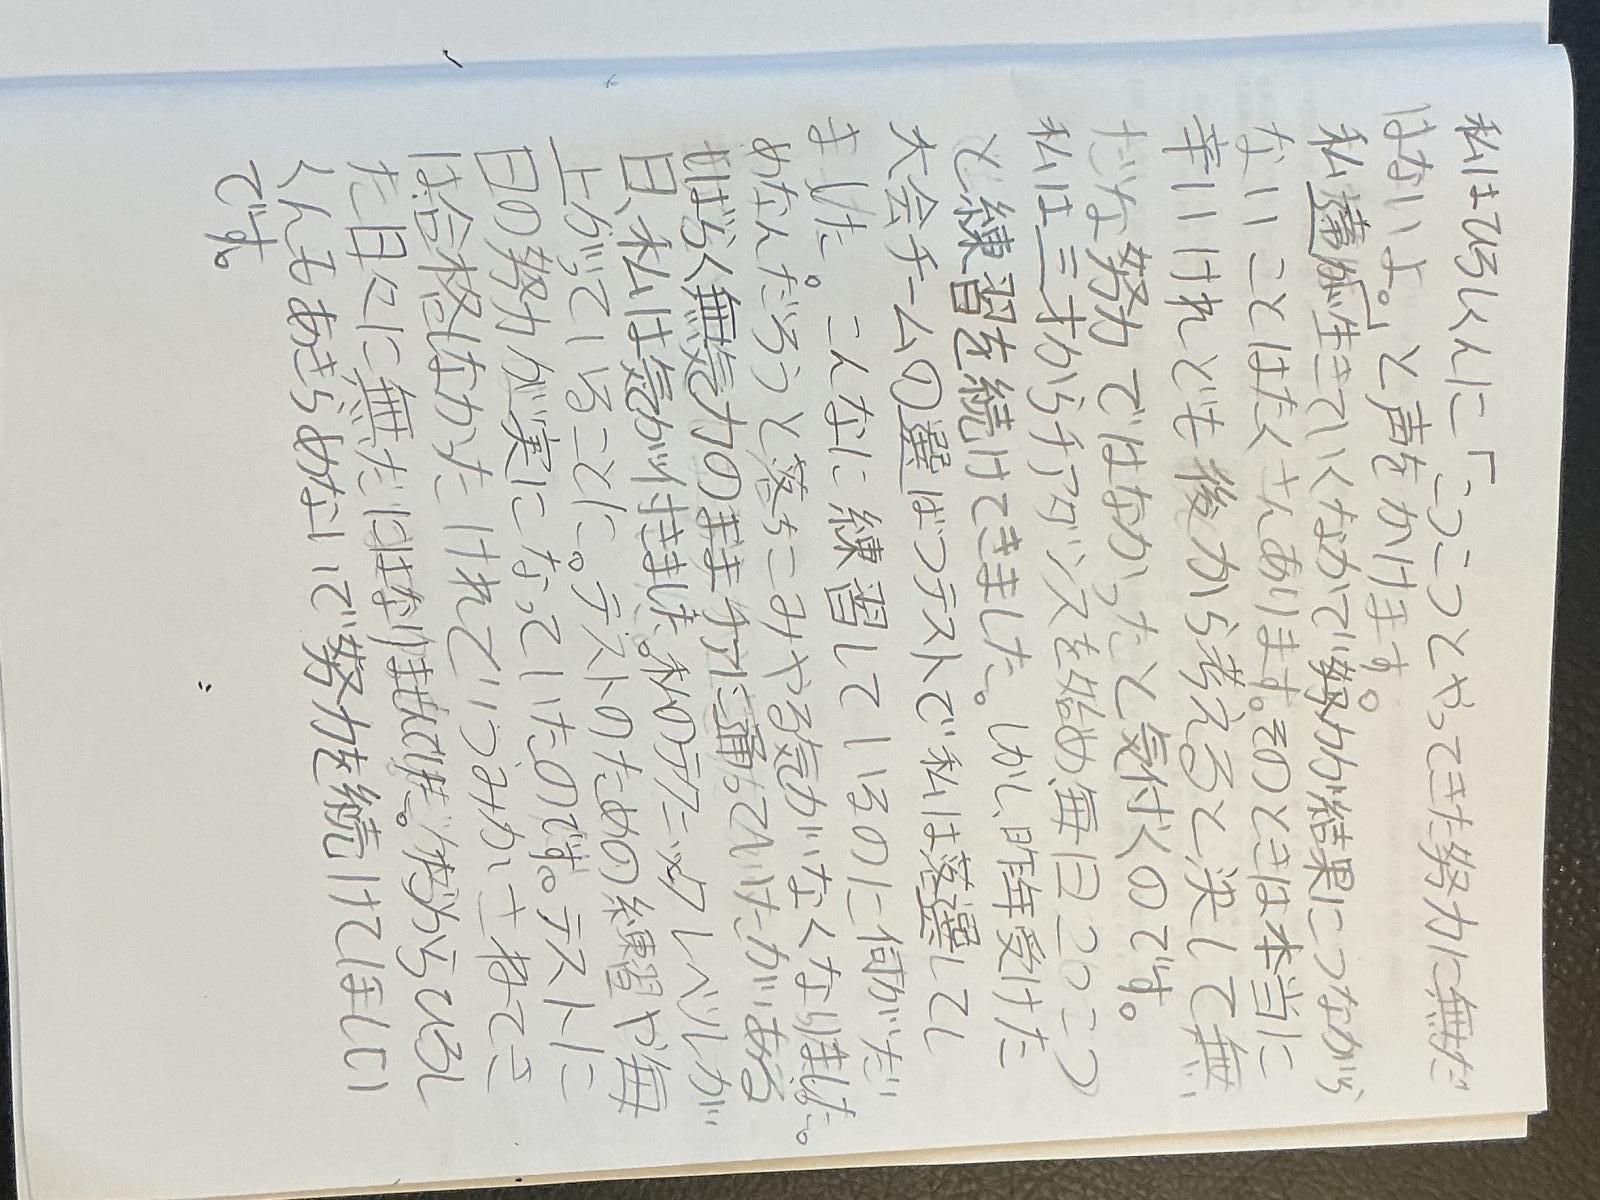 私はひろしくんに「こつこつとやってきた努力に無だ
はないよ。」と声をかけます。
私達が生きていくなかで努力が結果につながら
ないことはたくさんあります。そのときは本当に
辛いけれども後から考えると決して無
だな努力ではなかったと気付くのです。
私は三才からチアダンスを始め、毎日こつこつ
と練習を続けてきました。しかし、昨年受けた
大会チームの選ばつテストで私は落選して
ました。こんなに練習しているのに何がだ
めなんだろうと落ちこみやる気がなくなりました。
しばらく無気力のままチアに通っていたがある
日、私は気が付きました。私のテクニックレベルが
上がっていることに。テストのための練習や毎
日の努力が実になっていたのです。テストに
は合格しなかったけれどつみかさねてき
た日々に無だにはなりませんでした。だからひろし
くんもあきらめないで努力を続けてほしい
です。